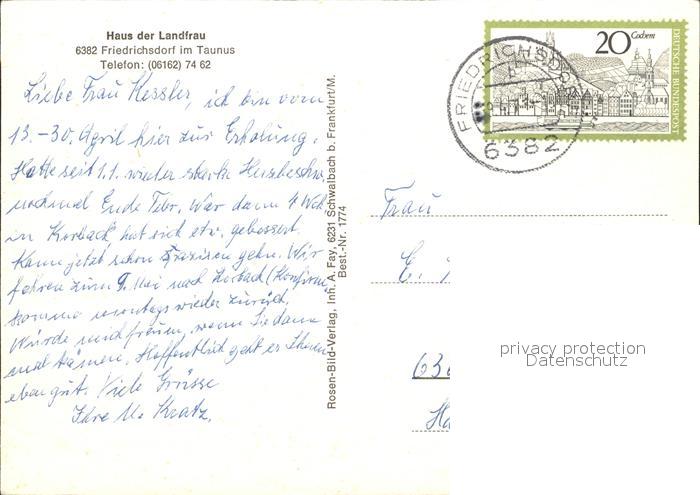 Haus der Landfrau
6382 Friedrichsdorf im Taunus
Telefon: (06162) 74 62
Liebe Frau Kessler, ich bin vom
13.-30. April hier zur Erholung.
Hatte seit 1.1. wieder starke Herzbeschw.
nochmal Ende Febr. War dann 4 Wch
in Korbach, hat sich etw. gebessert.
Kann jetzt schon spazieren gehn. Wir
fahren zum 9. Mai nach Korbach (Konfirm
komme montags wieder zurück.
Würde mich freuen, wenn Sie dann
mal kämen. Hoffentlich geht es Ihnen
eben gut. Viele Grüsse
Ihre M. Kratz.
Rosen-Bild-Verlag, Inh. A. Fay, 6231 Schwalbach b. Frankfurt/M.
Best.-Nr. 1774
20 Cochem
DEUTSCHE BUNDESPOST
FRIEDRICHSDO
6382
Frau
E.
636
Ha
privacy protection
Datenschutz